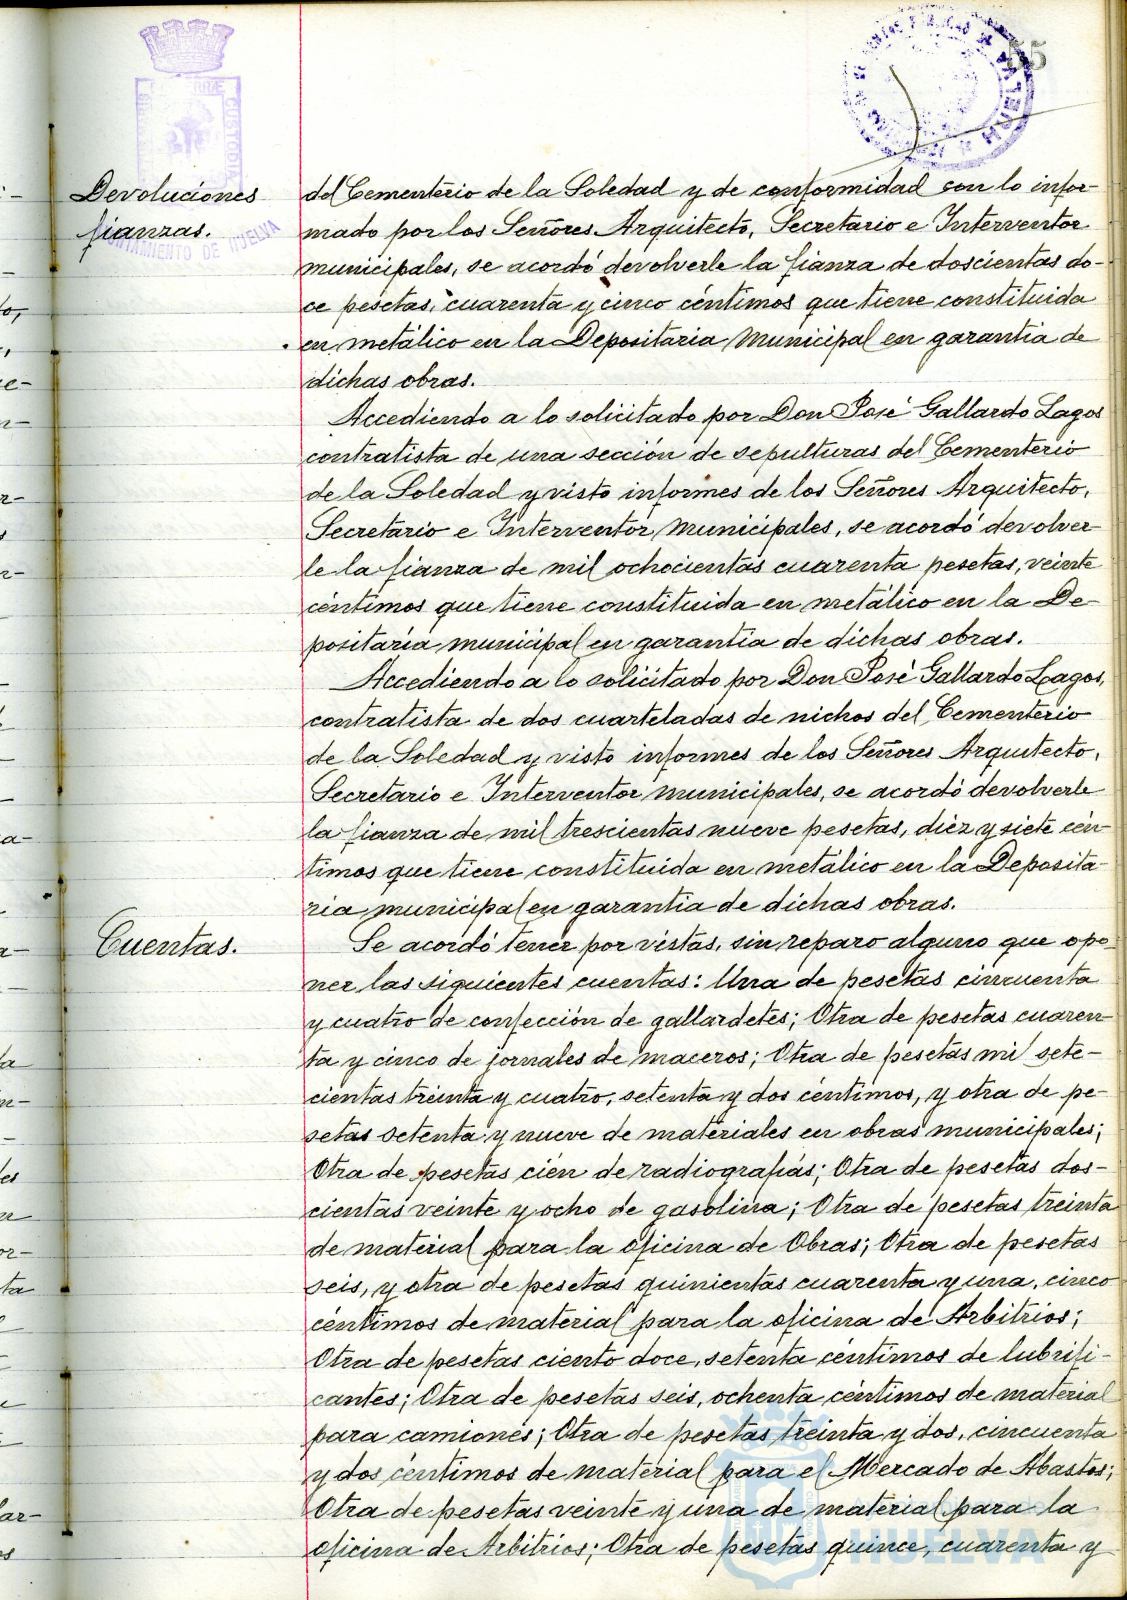 55
PORTUS MARIS ET TERRAE CUSTODIA
AYUNTAMIENTO DE HUELVA
Devoluciones
fianzas.
del Cementerio de la Soledad y de conformidad con lo infor-
mado por los Señores Arquitecto, Secretario e Interventor
municipales, se acordó devolverle la fianza de doscientas do-
ce pesetas, cuarenta y cinco céntimos que tiene constituida
en metálico en la Depositaria Municipal en garantia de
dichas obras.
Accediendo a lo solicitado por Don José Gallardo Lagos
contratista de una sección de sepulturas del Cementerio
de la Soledad y visto informes de los Señores Arquitecto,
Secretario e Interventor municipales, se acordó devolver-
le la fianza de mil ochocientas cuarenta pesetas, veinte
céntimos que tiene constituida en metálico en la De-
positaria municipal en garantia de dichas obras.
Accediendo a lo solicitado por Don José Gallardo Lagos,
contratista de dos cuarteladas de nichos del Cementerio
de la Soledad y visto informes de los Señores Arquitecto,
Secretario e Interventor municipales, se acordó devolverle
la fianza de mil trescientas nueve pesetas, diez y siete cén-
timos que tiene constituida en metálico en la Deposita-
ria municipal en garantia de dichas obras.
Cuentas.
Se acordó tener por vistas, sin reparo alguno que opo-
ner las siguientes cuentas: Una de pesetas cincuenta
y cuatro de confección de gallardetes; Otra de pesetas cuaren-
ta y cinco de jornales de maceros; Otra de pesetas mil sete-
cientas treinta y cuatro, setenta y dos céntimos, y otra de pe-
setas setenta y nueve de materiales en obras municipales;
Otra de pesetas cien de radiografias; Otra de pesetas dos-
cientas veinte y ocho de gasolina; Otra de pesetas treinta
de material para la oficina de Obras; Otra de pesetas
seis, y otra de pesetas quinientas cuarenta y una, cinco
céntimos de material para la oficina de Arbitrios;
Otra de pesetas ciento doce, setenta céntimos de lubrifi-
cantes; Otra de pesetas seis, ochenta céntimos de material
para camiones; Otra de pesetas treinta y dos, cincuenta
y dos céntimos de material para el Mercado de Abastos;
Otra de pesetas veinte y una de material para la
oficina de Arbitrios; Otra de pesetas quince, cuarenta y
HUELVA